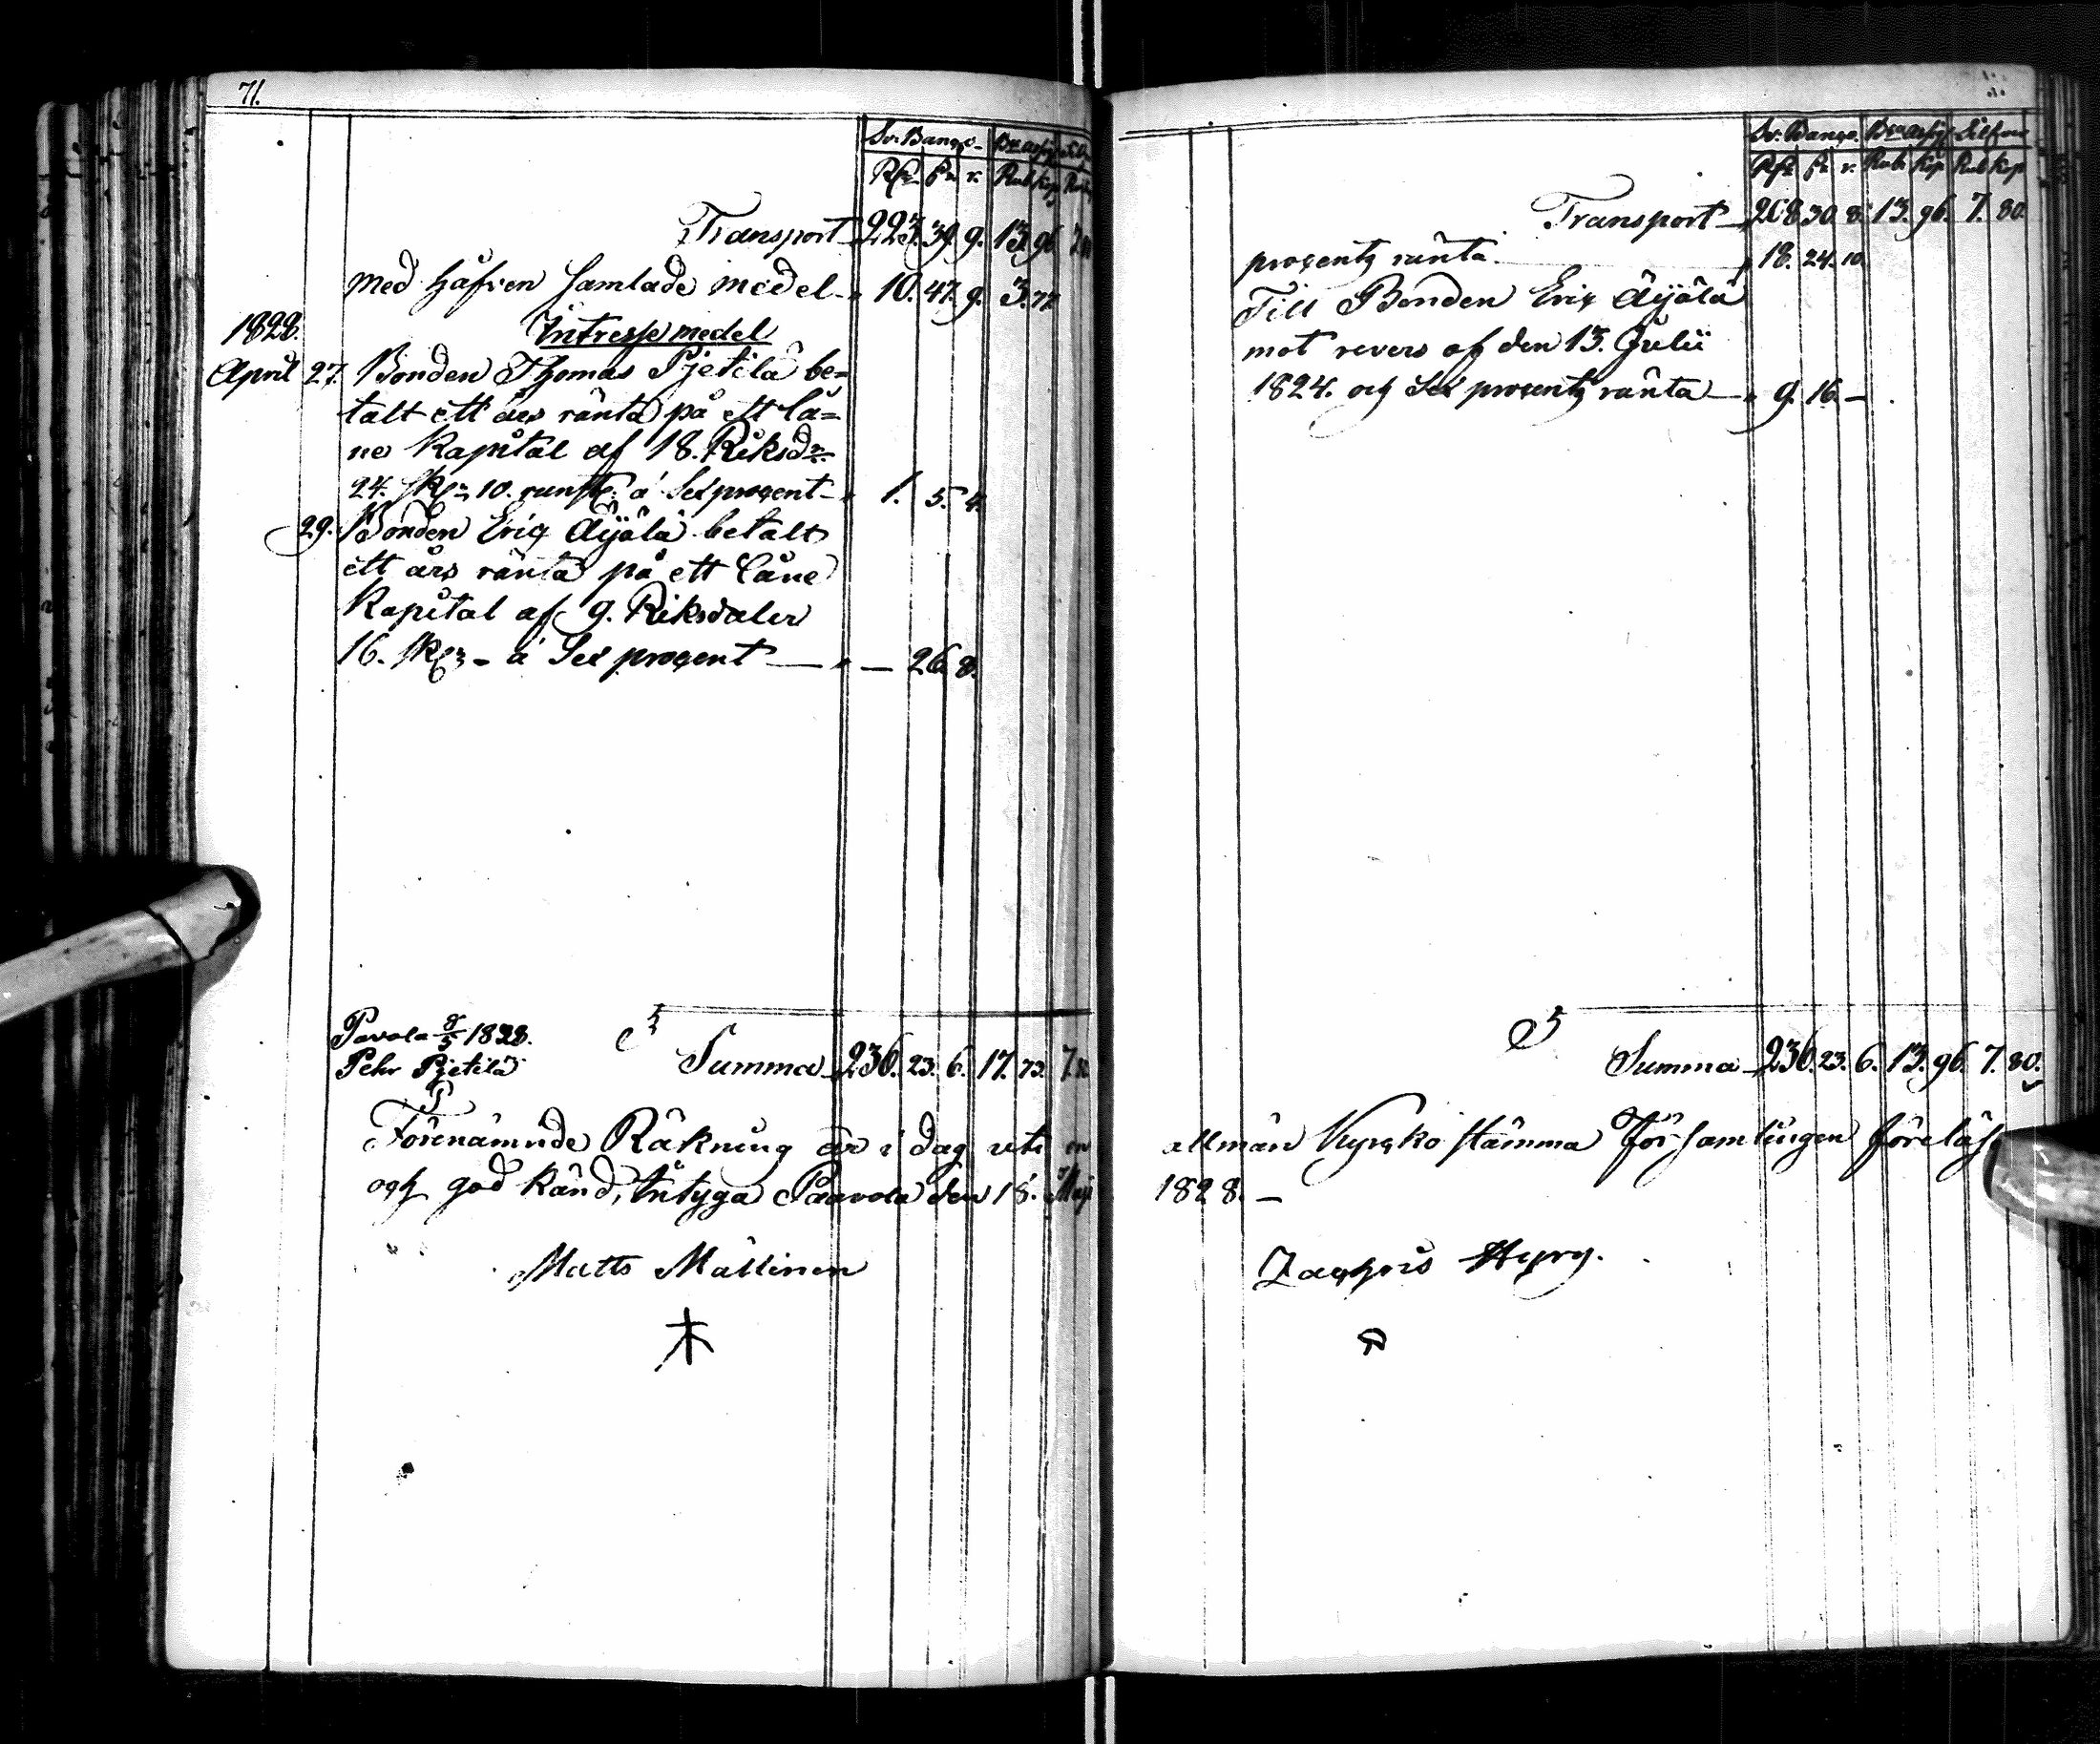 71.
Sv. Banco. Bco assig. Silf
Rdr sk. r. Rub. Kop Rub
Transport 223. 39. 9. 13. 96 7. 80
med håfven samlade medel 10. 47. 9. 3. 77
1828. Intresse medel
April 27. Bonden Thomas Pjetilä be=
talt ett års ränta på ett lå=
ne Kapital af 18. Riksdr.
24. sk. 10. runst. á Sex procent 1. 5. 4.
29. Bonden Eric Äijälä betalt
ett års ränta på ett låne
Kapital af 9. Riksdaler
16. sk. - á Sex procent — — 26. 8.
Pavola 8/5 1828. S
Pehr Pjetilä Summa 236. 23. 6. 17. 73. 7. 80
P
Förenämnde Räkning är i dag uti en
och god känd, intyga Paavola den 18. Maji
Matts Mällinen
Sv. Banco. Bco assig. Silfver
Rdr sk. r. Rub. Kop Rub Kop
Transport 208. 30. 8. 13. 96. 7. 80.
procents ränta 18. 24. 10.
Till Bonden Eric Äijälä
mot revers af den 13. Julii
1824. och Sex procents ränta 9. 16. —
S
Summa 236. 23. 6. 13. 96. 7. 80.
allmän Kyrcko stämma För samlingen föreläs
1828. —
Zachris Hyry.